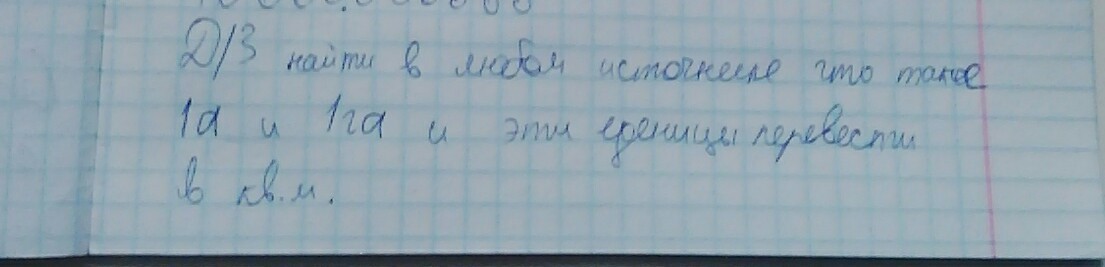 Д/З найти в любом источнике что такое
1а и 1га и эти еденицы перевести
в кв.м.